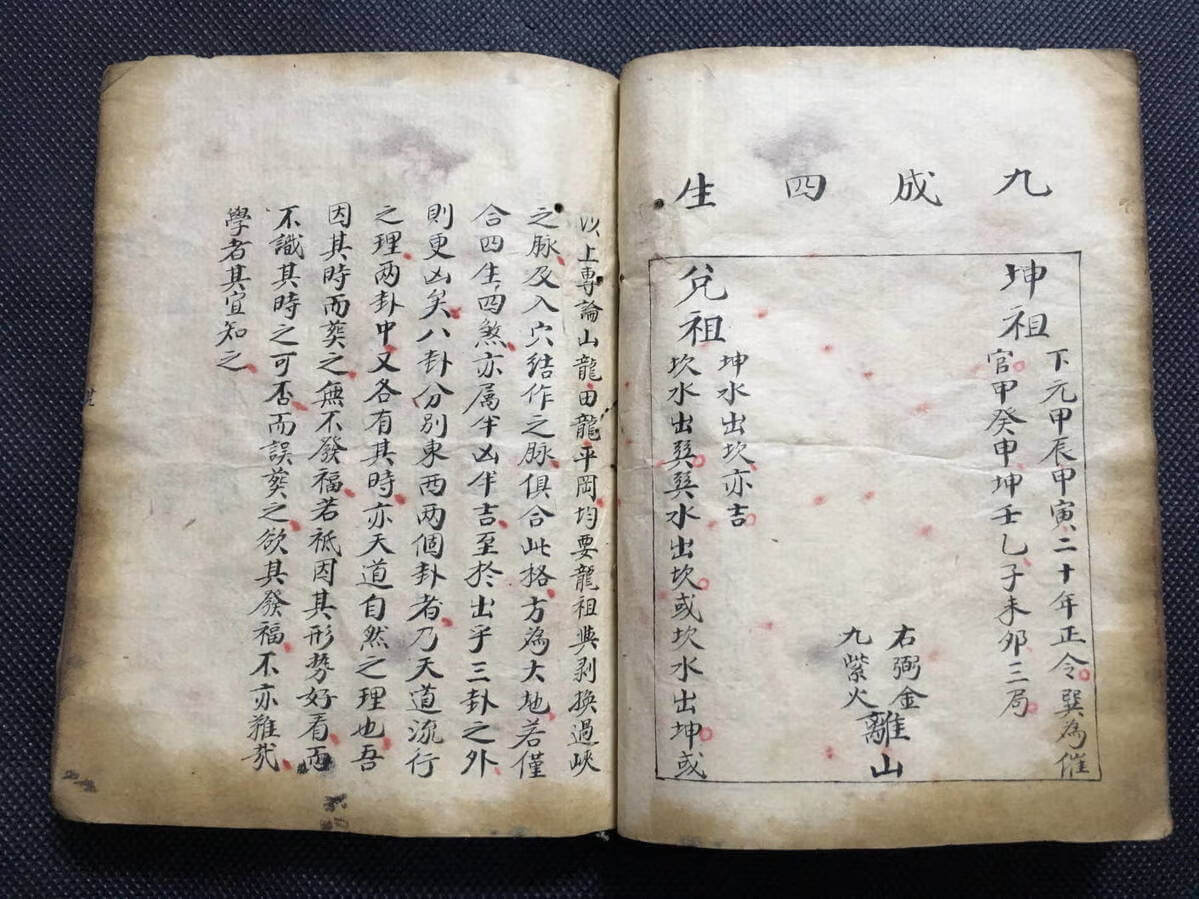 九成四生
坤祖
下元甲辰甲寅二十年正令巽為催
官甲癸申坤壬乙子未卯三局
右弼金
九紫火
離山
兌祖
坤水出坎亦吉
坎水出巽巽水出坎或坎水出坤或
以上專論山龍田龍平岡均要龍祖與剥換過峽
之脉及入穴結作之脉俱合此格方為大地若僅
合四生四煞亦属半凶半吉至於出乎三卦之外
則更凶矣八卦分別東西两個卦者乃天道流行
之理两卦中又各有其時亦天道自然之理也吾
因其時而葵之無不發福若祇因其形势好看而
不識其時之可否而誤葵之欲其發福不亦难哉
學者其宜知之